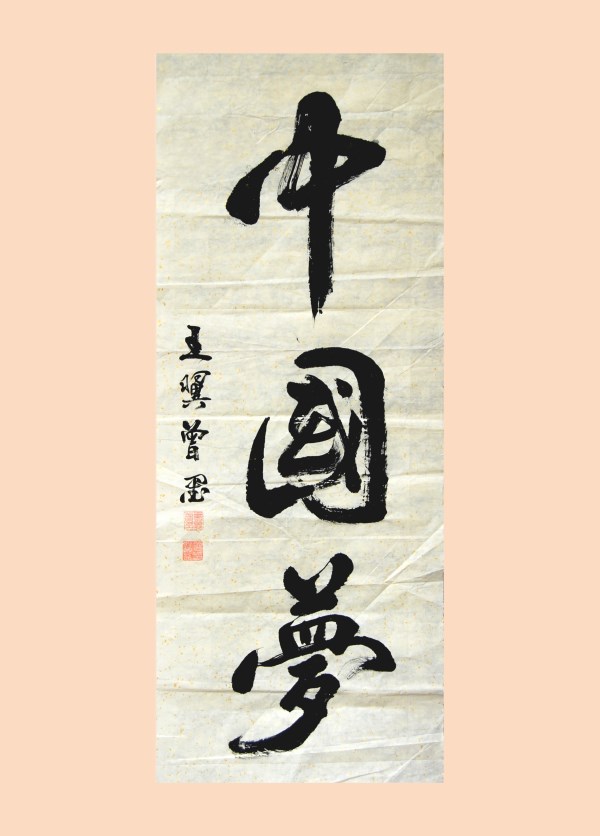 中國夢
王曎曾墨